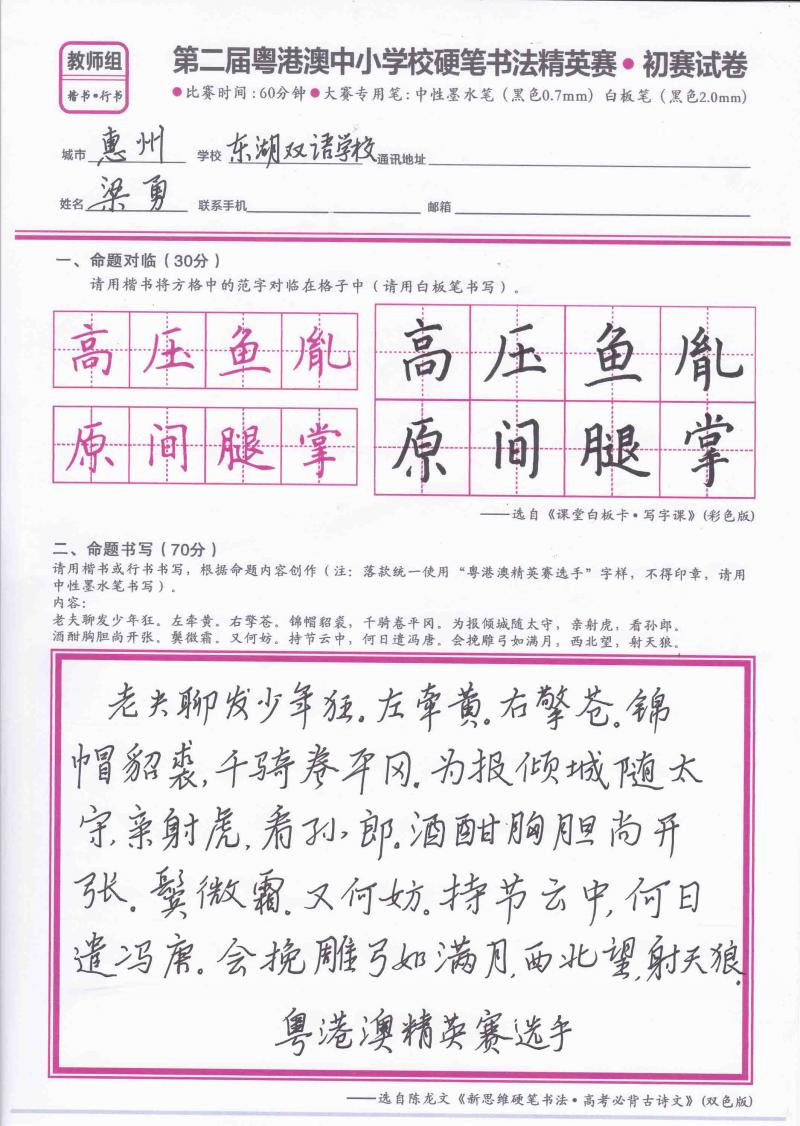 教师组
楷书•行书
第二届粤港澳中小学校硬笔书法精英赛•初赛试卷
●比赛时间：60分钟●大赛专用笔：中性墨水笔（黑色0.7mm）白板笔（黑色2.0mm）
城市 惠州 学校 东湖双语学校 通讯地址
姓名 梁勇 联系手机 邮箱
一、命题对临（30分）
请用楷书将方格中的范字对临在格子中（请用白板笔书写）。
高压鱼胤 高压鱼胤
原间腿掌 原间腿掌
——选自《课堂白板卡•写字课》(彩色版)
二、命题书写（70分）
请用楷书或行书书写，根据命题内容创作（注：落款统一使用“粤港澳精英赛选手”字样，不得印章，请用
中性墨水笔书写）。
内容：
老夫聊发少年狂。左牵黄。右擎苍。锦帽貂裘，千骑卷平冈。为报倾城随太守，亲射虎，看孙郎。
酒酣胸胆尚开张。鬓微霜。又何妨。持节云中，何日遣冯唐。会挽雕弓如满月，西北望，射天狼。
老夫聊发少年狂。左牵黄。右擎苍。锦
帽貂裘，千骑卷平冈。为报倾城随太
守，亲射虎，看孙郎。酒酣胸胆尚开
张。鬓微霜。又何妨。持节云中，何日
遣冯唐。会挽雕弓如满月，西北望，射天狼。
粤港澳精英赛选手
——选自陈龙文《新思维硬笔书法•高考必背古诗文》(双色版)